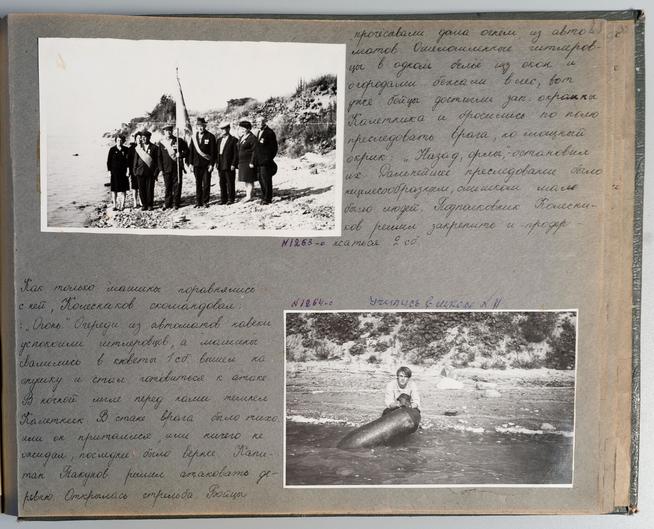 прочесывали дома огнем из авто-
матов. Ошеломленные гитлеров-
цы в одном белье из окон и
огородами бежали в лес, вот
уже бойцы достигли зап. окраины
и бросились по полю
преследовать врага, но мощный
окрик: „Назад, орлы,"- остановил
их. Дальнейшее преследование было
нецелесообразным, слишком мало
было людей. Подполковник Колесни-
ков решил закрепиться и продер-
№1263-с жаться 2 сб.
Как только машины поравнялись
с ней, Колесников скомандовал:
„Огонь." Очереди из автоматов навеки
успокоили гитлеровцев, а машины
свалились в кюветы 1 сб. вышел на
опушку и стал готовиться к атаке.
В ночной мгле перед нами темнел
В стане врага было тихо,
или он притаился, или ничего не
ожидал, последнее было верней. Капи-
тан решил атаковать де-
ревню. Открылась стрельба. Бойцы
№1264-с